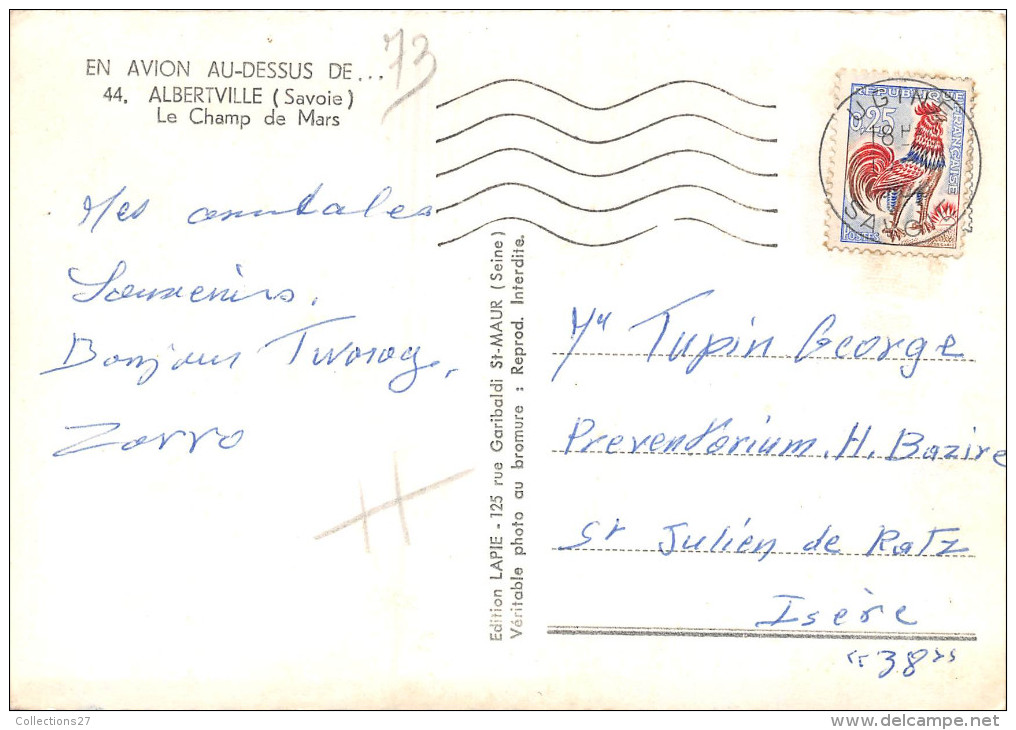 EN AVION AU-DESSUS DE...
44. ALBERTVILLE (Savoie)
Le Champ de Mars
73
Mes
Souvenirs.
Bonjour
Zorro
H
Edition LAPIE - 125 rue Garibaldi St-MAUR (Seine)
Véritable photo au bromure : Reprod. Interdite.
REPUBLIQUE FRANÇAISE
0,25
POSTES
UGINE
18 H
Mr Tupin George
Preventorium. H. Bazire
St Julien de Ratz
Isère
"38"
Collections27
delcampe.net